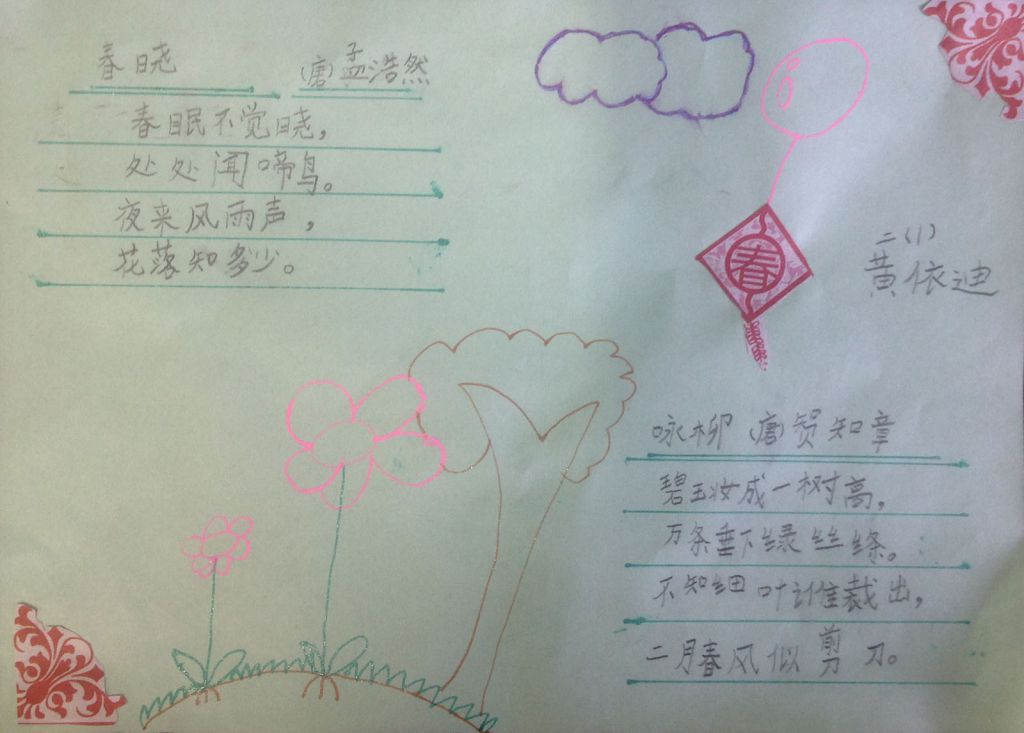 春晓 (唐)孟浩然
春眠不觉晓，
处处闻啼鸟。
夜来风雨声，
花落知多少。
春
二(1)
黄依迪
咏柳 (唐)贺知章
碧玉妆成一树高，
万条垂下绿丝绦。
不知细叶谁裁出，
二月春风似剪刀。